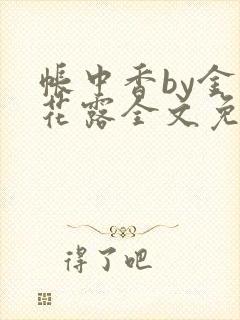 帐中香by金
花露全文免
得了吧